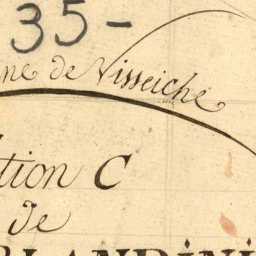 35-
ne de Visseiche
tion C
de
LANDINI